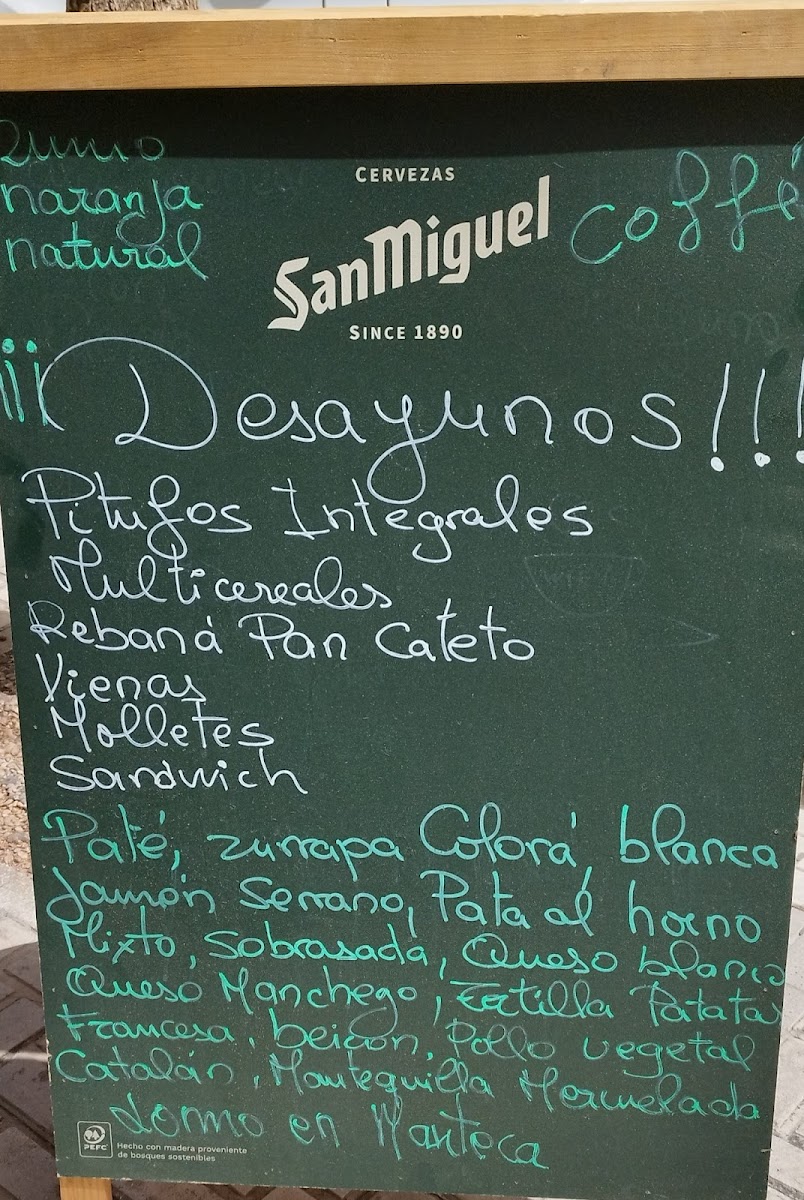 Zumo
naranja
natural
CERVEZAS
SanMiguel
SINCE 1890
Coffé
¡¡¡Desayunos!!!
Pitufos Integrales
Multicereales
Rebaná Pan Cateto
Vienas
Molletes
Sandwich
Paté, zurrapa Colorá, blanca
Jamón Serrano, Pata al horno
Mixto, Sobrasada, Queso blanco
Queso Manchego, Tortilla Patatas
Francesa, beicon, Pollo vegetal
Catalán, Mantequilla Mermelada
Lomo en Manteca
PEFC
Hecho con madera proveniente
de bosques sostenibles